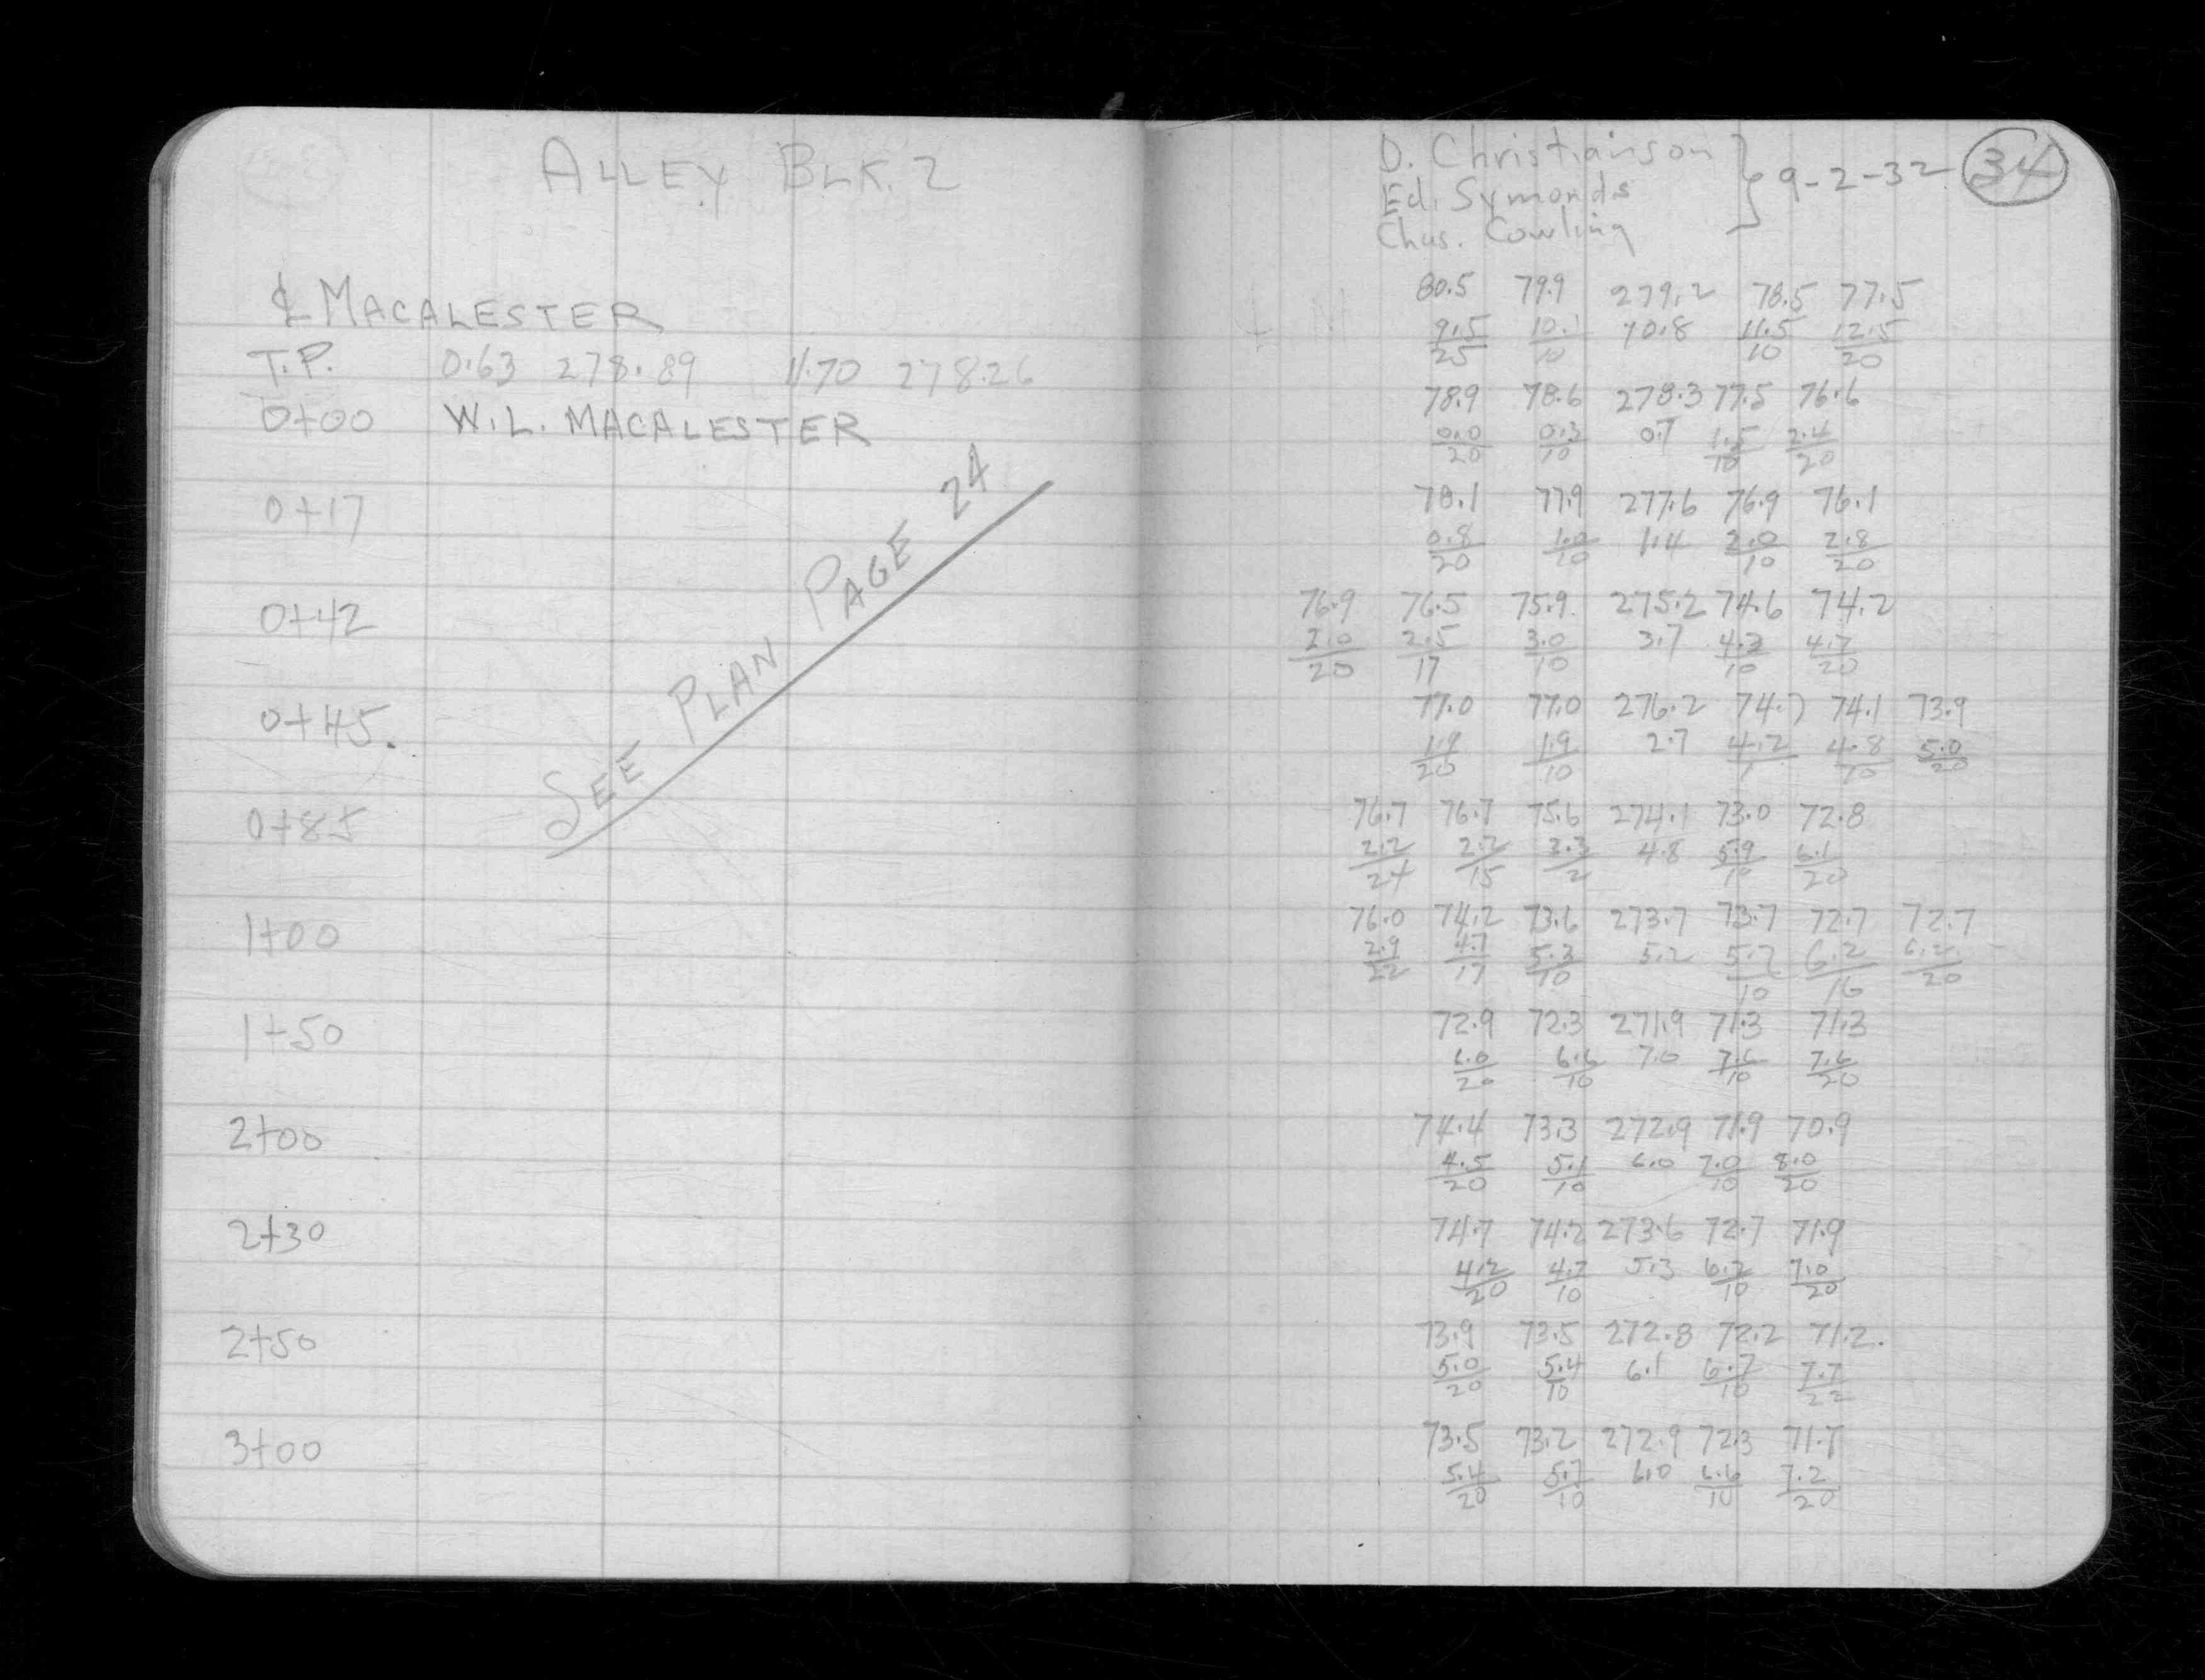 ALLEY BLK. 2
D. Christianson
Ed. Symonds
Chas. Cowling
9-2-32
34
℄ MACALESTER
80.5 79.9 279.2 78.5 77.5
9.5/25 10.1/10 10.8 11.5/10 12.5/20
T.P. 0.63 278.89 11.70 278.26
0+00 W.L. MACALESTER
78.9 78.6 278.3 77.5 76.6
0.0/20 0.3/10 0.7 1.5/10 2.4/20
0+17
78.1 77.9 277.6 76.9 76.1
0.8/20 1.0/10 1.4 2.0/10 2.8/20
SEE PLAN PAGE 24
0+42
76.9 76.5 75.9 275.2 74.6 74.2
2.0/20 2.5/17 3.0/10 3.7 4.3/10 4.7/20
0+45.
77.0 77.0 276.2 74.7 74.1 73.9
1.9/20 1.9/10 2.7 4.2/1 4.8/10 5.0/20
0+85
76.7 76.7 75.6 274.1 73.0 72.8
2.2/24 2.2/15 3.3/2 4.8 5.9/10 6.1/20
1+00
76.0 74.2 73.6 273.7 73.7 72.7 72.7
2.9/22 4.7/17 5.3/10 5.2 5.2/10 6.2/16 6.2/20
1+50
72.9 72.3 271.9 71.3 71.3
6.0/20 6.6/10 7.0 7.6/10 7.6/20
2+00
74.4 73.3 272.9 71.9 70.9
4.5/20 5.1/10 6.0 7.0/10 8.0/20
2+30
74.7 74.2 273.6 72.7 71.9
4.2/20 4.7/10 5.3 6.2/10 7.0/20
2+50
73.9 73.5 272.8 72.2 71.2.
5.0/20 5.4/10 6.1 6.7/10 7.7/22
3+00
73.5 73.2 272.9 72.3 71.7
5.4/20 5.7/10 6.0 6.6/10 7.2/20